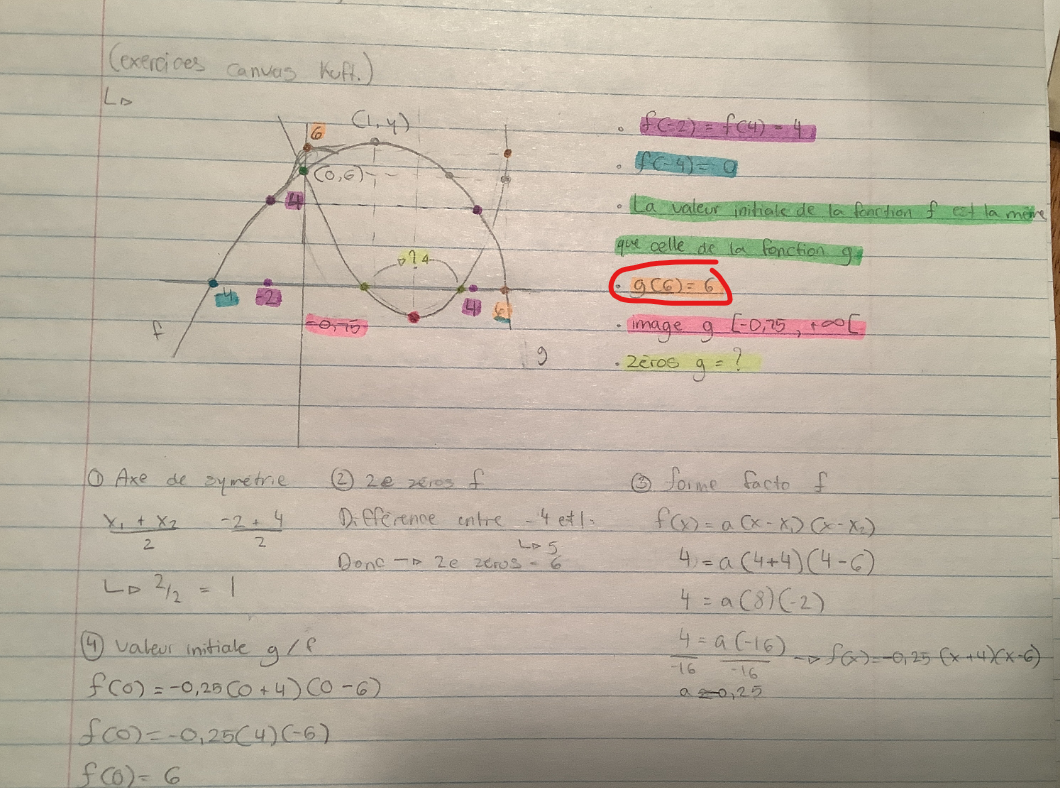 (exercices canvas Kuft.)
L▷
6
(1,4)
(0,6)
4
▷?4
-4
-2
4
6
-0,75
f
g
• f(-2) = f(4) = 4
• f(-4) = 0
• La valeur initiale de la fonction f est la même
que celle de la fonction g
• g(6) = 6
• image g [-0,75 , +∞[
• zéros g = ?
① Axe de symétrie
x₁ + x₂ / 2   -2 + 4 / 2
L▷ 2/2 = 1
② 2e zéros f
Différence entre -4 et 1.
L▷ 5
Donc —▷ 2e zéros = 6
③ forme facto f
f(x) = a(x-x₁)(x-x₂)
4 = a(4+4)(4-6)
4 = a(8)(-2)
4 = a(-16)
-16   -16
—▷ f(x) = -0,25(x+4)(x-6)
a = -0,25
④ valeur initiale g/f
f(0) = -0,25(0+4)(0-6)
f(0) = -0,25(4)(-6)
f(0) = 6